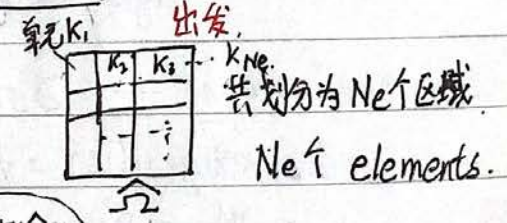 出发.
单元K₁
K₂ K₃ ... K_Ne.
共划分为 Ne个区域.
Ne个 elements.
Ω